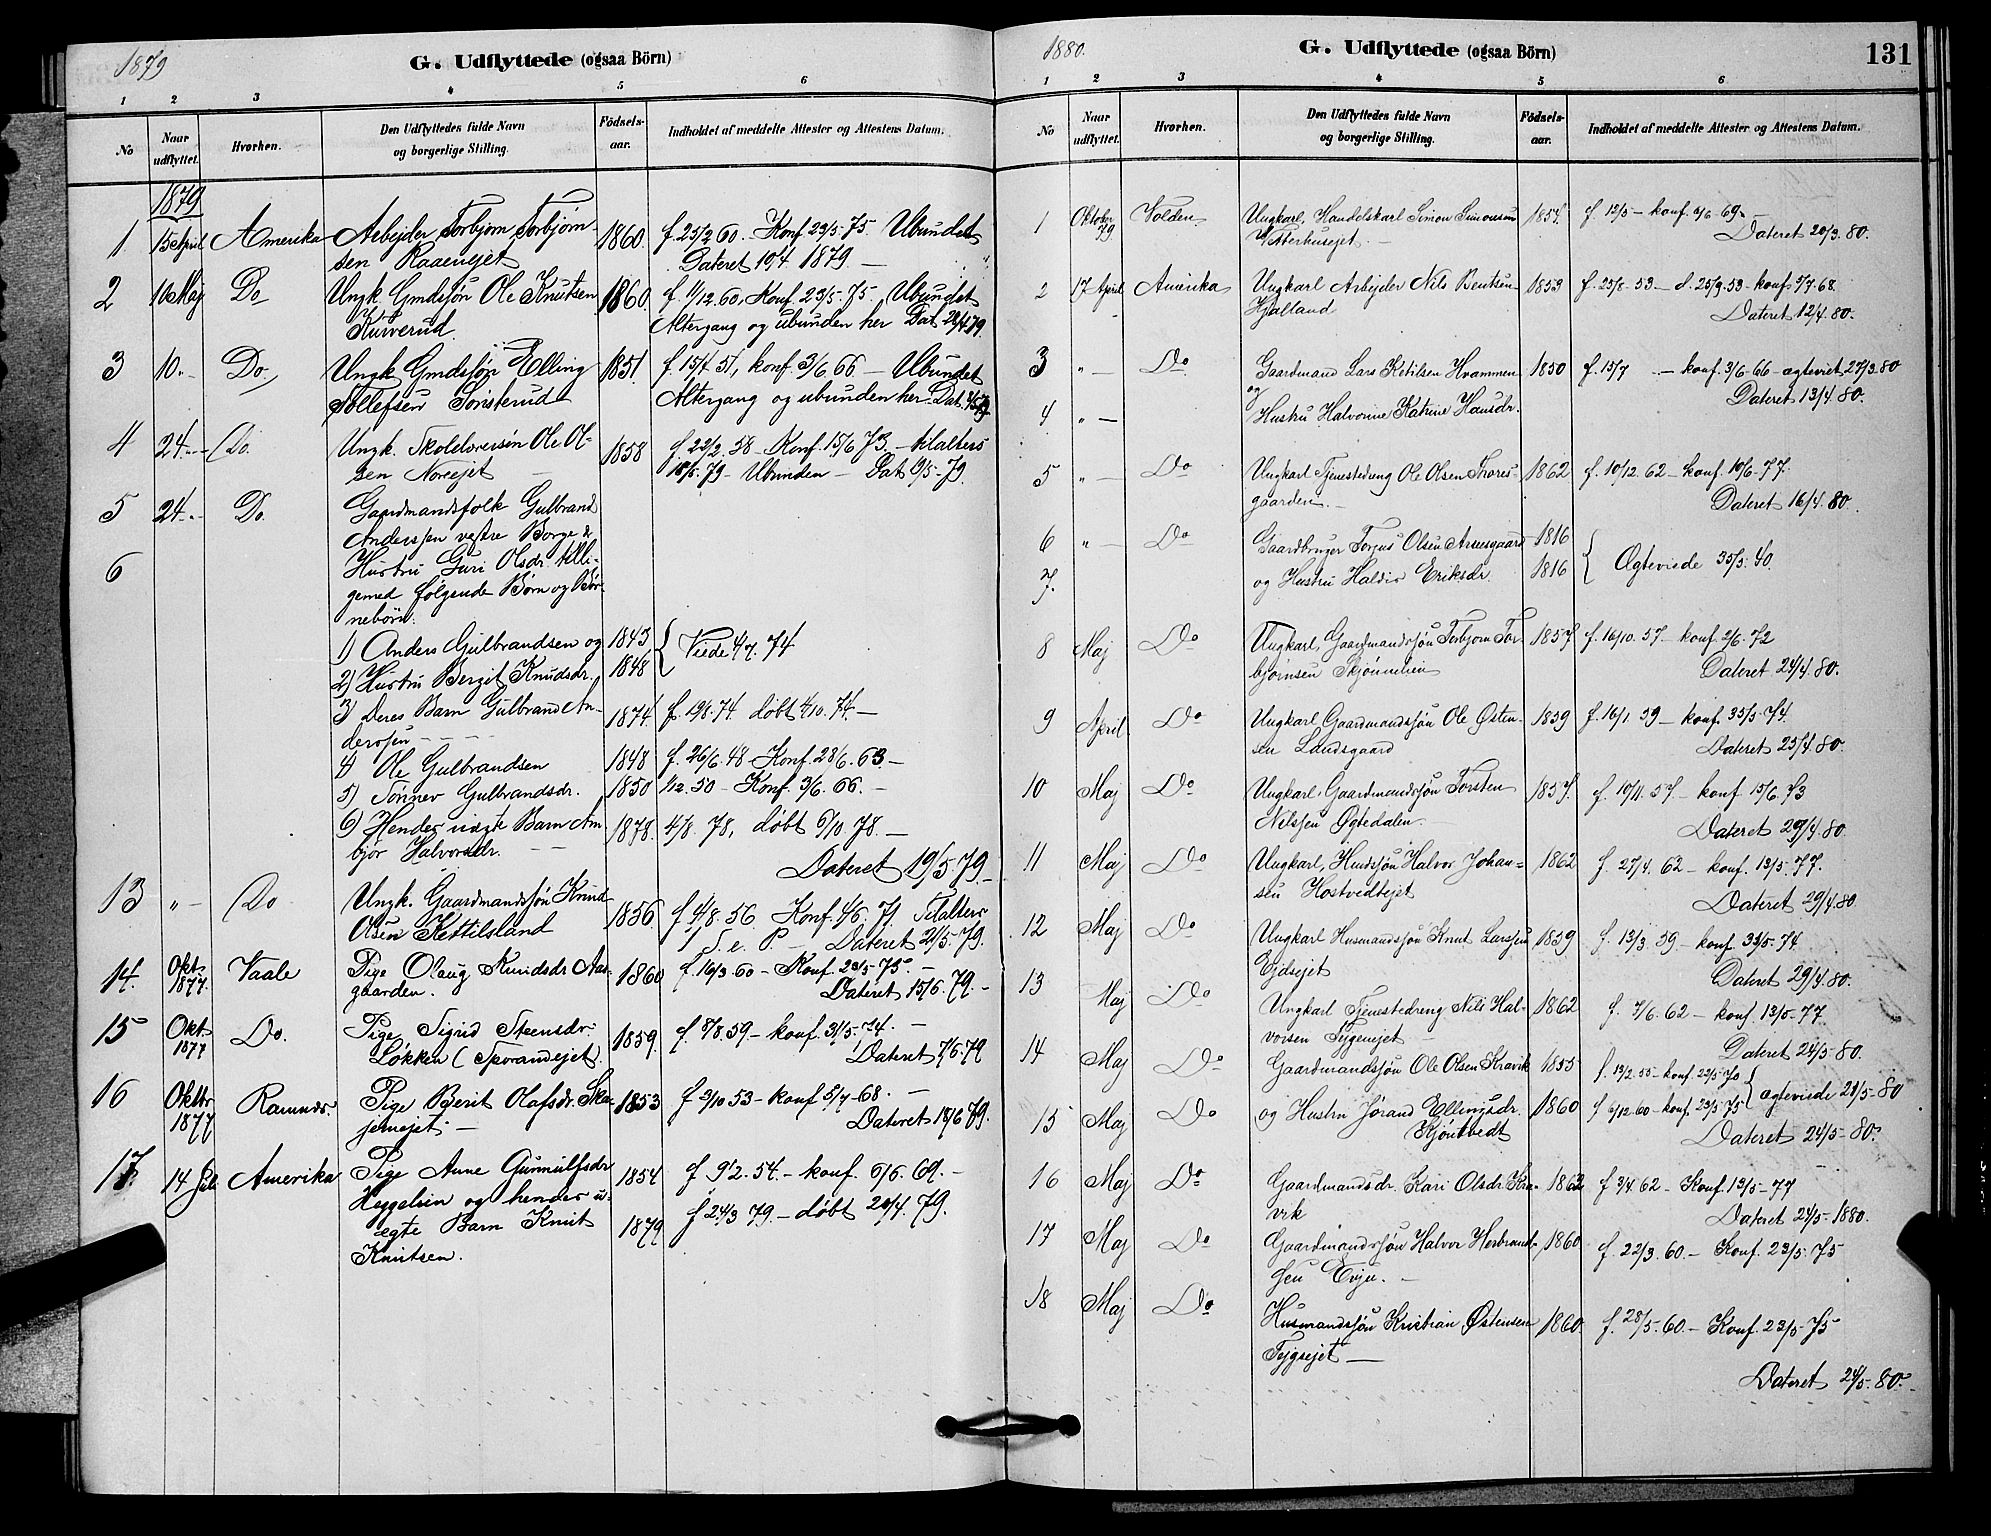 1879
G. Udflyttede (ogsaa Börn)
1 2 3 4 5 6
No
Naar udflyttet.
Hvorhen.
Den Udflyttedes fulde Navn og borgerlige Stilling.
Födsels-aar.
Indholdet af meddelte Attester og Attestens Datum.
1879
1 15 April Amerika Arbejder Torbjørn Torbjørn- 1860 f. 25/2 60. Konf. 23/5-75. Ubundet
sen Raaenejet Dateret 19/4 1879.
2 16 Maj Do Ungk. Gmdsføn Ole Knutsen 1860 f. 11/12.60. Konf. 23/5-75, Ubundet
Altergang og ubunden her Dat. 28/4 79
3 10 Do Ungk. Gmdsføn Elling 1851. f. 15/4 51, konf. 3/6 66 - Ubundet
Tollefsen Altergang og ubunden her. Dat.
4 24 Do. Ungk. Ole Ol- 1858 f. 22/2. 58 - Konf. 15/6 73
sen 79 - Ubunden - Dat 9/5-79.
5 24 Do. Gaardmandsfolk Gulbrand
Anderssen vestre Borge &
6 Hustru Guri Olsdr. tilli-
gemed følgende Børn og Bør-
nebörn:
1) Anders Gulbrandsen og 1843
2) Hustru Bergit Knudsdr. 1848 Viede 4/7. 74
3) Deres Barn Gulbrand An- 1874 f. 19/8.74 döbt 4/10.74.
derssen
4) Ole Gulbrandsen 1848 f. 26/6.48 - Konf. 28/6.63.
5) Tönnev Gulbrandsdr. 1850 1/12.50 - Konf. 3/6.66.
6) Hendes uægte Barn Am- 1878. 4/8. 78, döbt 6/10.78.
björ Halvorsdr.
Dateret 19/5.79.
13 " Do Ungk. Gaardmandssøn Knud
Olsen Kettilsland 1856 f. 4/8.56 Konf. 4/6. 71
Dateret 21/5.79.
14. Okt. 1877. Vaale Pige Olaug Knudsdr. Aas- 1860 f. 16/3 60 - Konf. 23/5-75.
gaarden. Dateret 15/6.79.
15 Okt 1877 Do. Pige Sigrid Steensdr 1859. f. 8/8.59 - konf. 31/5-74.
Løkken Dateret 7/6-79
16 Oktbr 1877 Ramnæs. Pige Berit Olafsdr. Ska- 1853 f 3/10 53 - konf 5/7-68.
jemejet. Dateret 18/6 79.
17. 14 Amerika Pige Anne Gunnulfsdr 1854 f 9/2.54. - konf. 6/6.69.
Heggelien og hendes u-
ægte Barn Knut 1879 f 24/3 79 - døbt 20/4.79.
Knutsen.
1880.
G. Udflyttede (ogsaa Börn)
131
1 2 3 4 5 6
No
Naar udflyttet.
Hvorhen.
Den Udflyttedes fulde Navn og borgerlige Stilling.
Födsels-aar.
Indholdet af meddelte Attester og Attestens Datum.
1 Oktober 79. Ungkarl, Handelskarl Simon Simonsen 1854.
Dateret 20/3.80.
2 17 April Amerika Ungkarl Arbejder Nils Bentsen 1853 f. 23/8.53 - d. 25/9.53 - konf. 5/7.68
Hjalland Dateret 12/4.80.
3 " Do Gaardmand Lars Ketilsen Hvammen 1850 f. 15/7 - konf. 3/6-66 - ægteviet 27/3.80
og Dateret 13/4.80.
4 " Hustru Halvorine Katrine Hansdr.
5 " Do Ungkarl Tjenestedreng Ole Olsen Thores- 1862 f. 10/12 62 - konf. 10/6-77.
gaarden. Dateret 16/4.80.
6 " Do Gaardbruger Torjus Olsen Arnesgaard 1816
7. og Hustru Haldis Eriksdr. 1816 Ægteviede 40.
8 Maj Do Ungkarl, Gaardmandssøn Torbjørn Tor- 1857. f. 16/10.57 - konf. 2/6.72
bjørnsen Skjønnelien Dateret 24/4.80.
9 April Do Ungkarl, Gaardmandssøn Ole Østen- 1859 f. 16/1.59 - konf. 74.
sen Landsgaard Dateret 25/4.80.
10 Maj Do Ungkarl, Gaardmandssøn Torsten 1857. f. 10/11.57. - konf 15/6.73
Nilssen Øgtedalen. Dateret 29/4.80.
11 Maj Do Ungkarl, Halvor Johan- 1862 f. 27/4. 62 - konf. 13/5-77.
sen Hostvedtejet Dateret 29/4.80
12 Maj Do Ungkarl Husmandssøn Knut Larssen 1859 f. 13/3.59 - konf. 74
Ejdsejet Dateret 29/4.80.
13 Maj Do Ungkarl Tjenestedreng Nils Hal- 1862 f. 7/6.62 - konf. 13/5-77
vorsen Dateret 24/5-80.
14 Maj Do Gaardmandssøn Ole Olsen Kravik 1855 f. 13/2.55 - konf. 22/5-70
15 Maj Do og Hustru Jørand Ellingsdr. 1860 f 6/12.60 - konf. 23/5.75 ægteviede 21/5-80
Kjöntvedt Dateret 24/5-80.
16 Maj Do Gaardmandsdr. Kari Olsdr. Kra- 1862 f 3/4.62 - Konf. 13/5-77
vik Dateret 24/5-1880.
17 Maj Do Gaardmandssøn Halvor Herbrand- 1860 f. 22/3.60. - Konf. 23/5.75
sen Evju.
18 Maj Do Husmandssøn Kristian Østensen 1860. f. 28/5.60. - Konf. 23/5-75
Dateret 24/5.80.